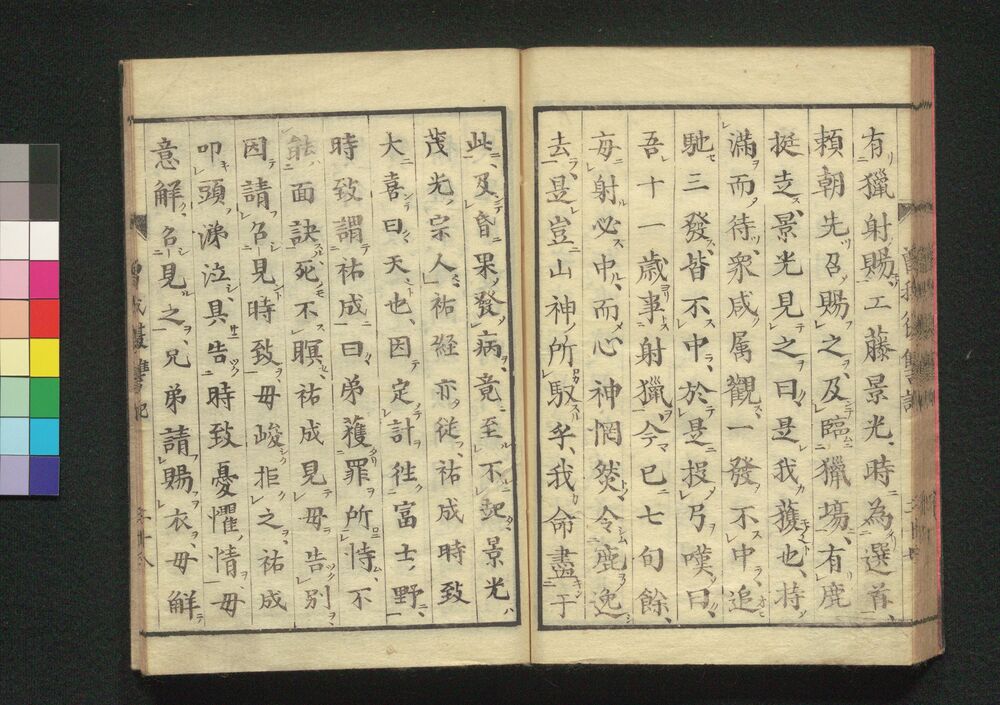 有獵射賜工藤景光時為選首
頼朝先召賜之及臨獵場有鹿
挺走景光見之曰是我獲也持
滿而待衆咸属觀一發不中追
馳三發皆不中於是投弓嘆曰
吾十一歳事射獵今已七旬餘
毎射必中而心神惘然令鹿逸
去是豈山神所馭乎我命盡于
此及昏果發病竟至不起景光
茂光宗人祐経亦従祐成時致
大喜曰天也因定計徃富士野
時致謂祐成曰弟獲罪所恃不
能面訣死不瞑祐成見母告別
因請召見時致母峻拒之祐成
叩頭涕泣具告時致憂懼情母
意解召見之兄弟請賜衣母解